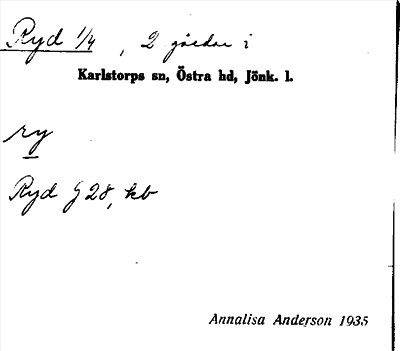 Ryd 1/4, 2 gårdar i
Karlstorps sn, Östra hd, Jönk. l.
ry
Ryd G28, kb
Annalisa Anderson 1935